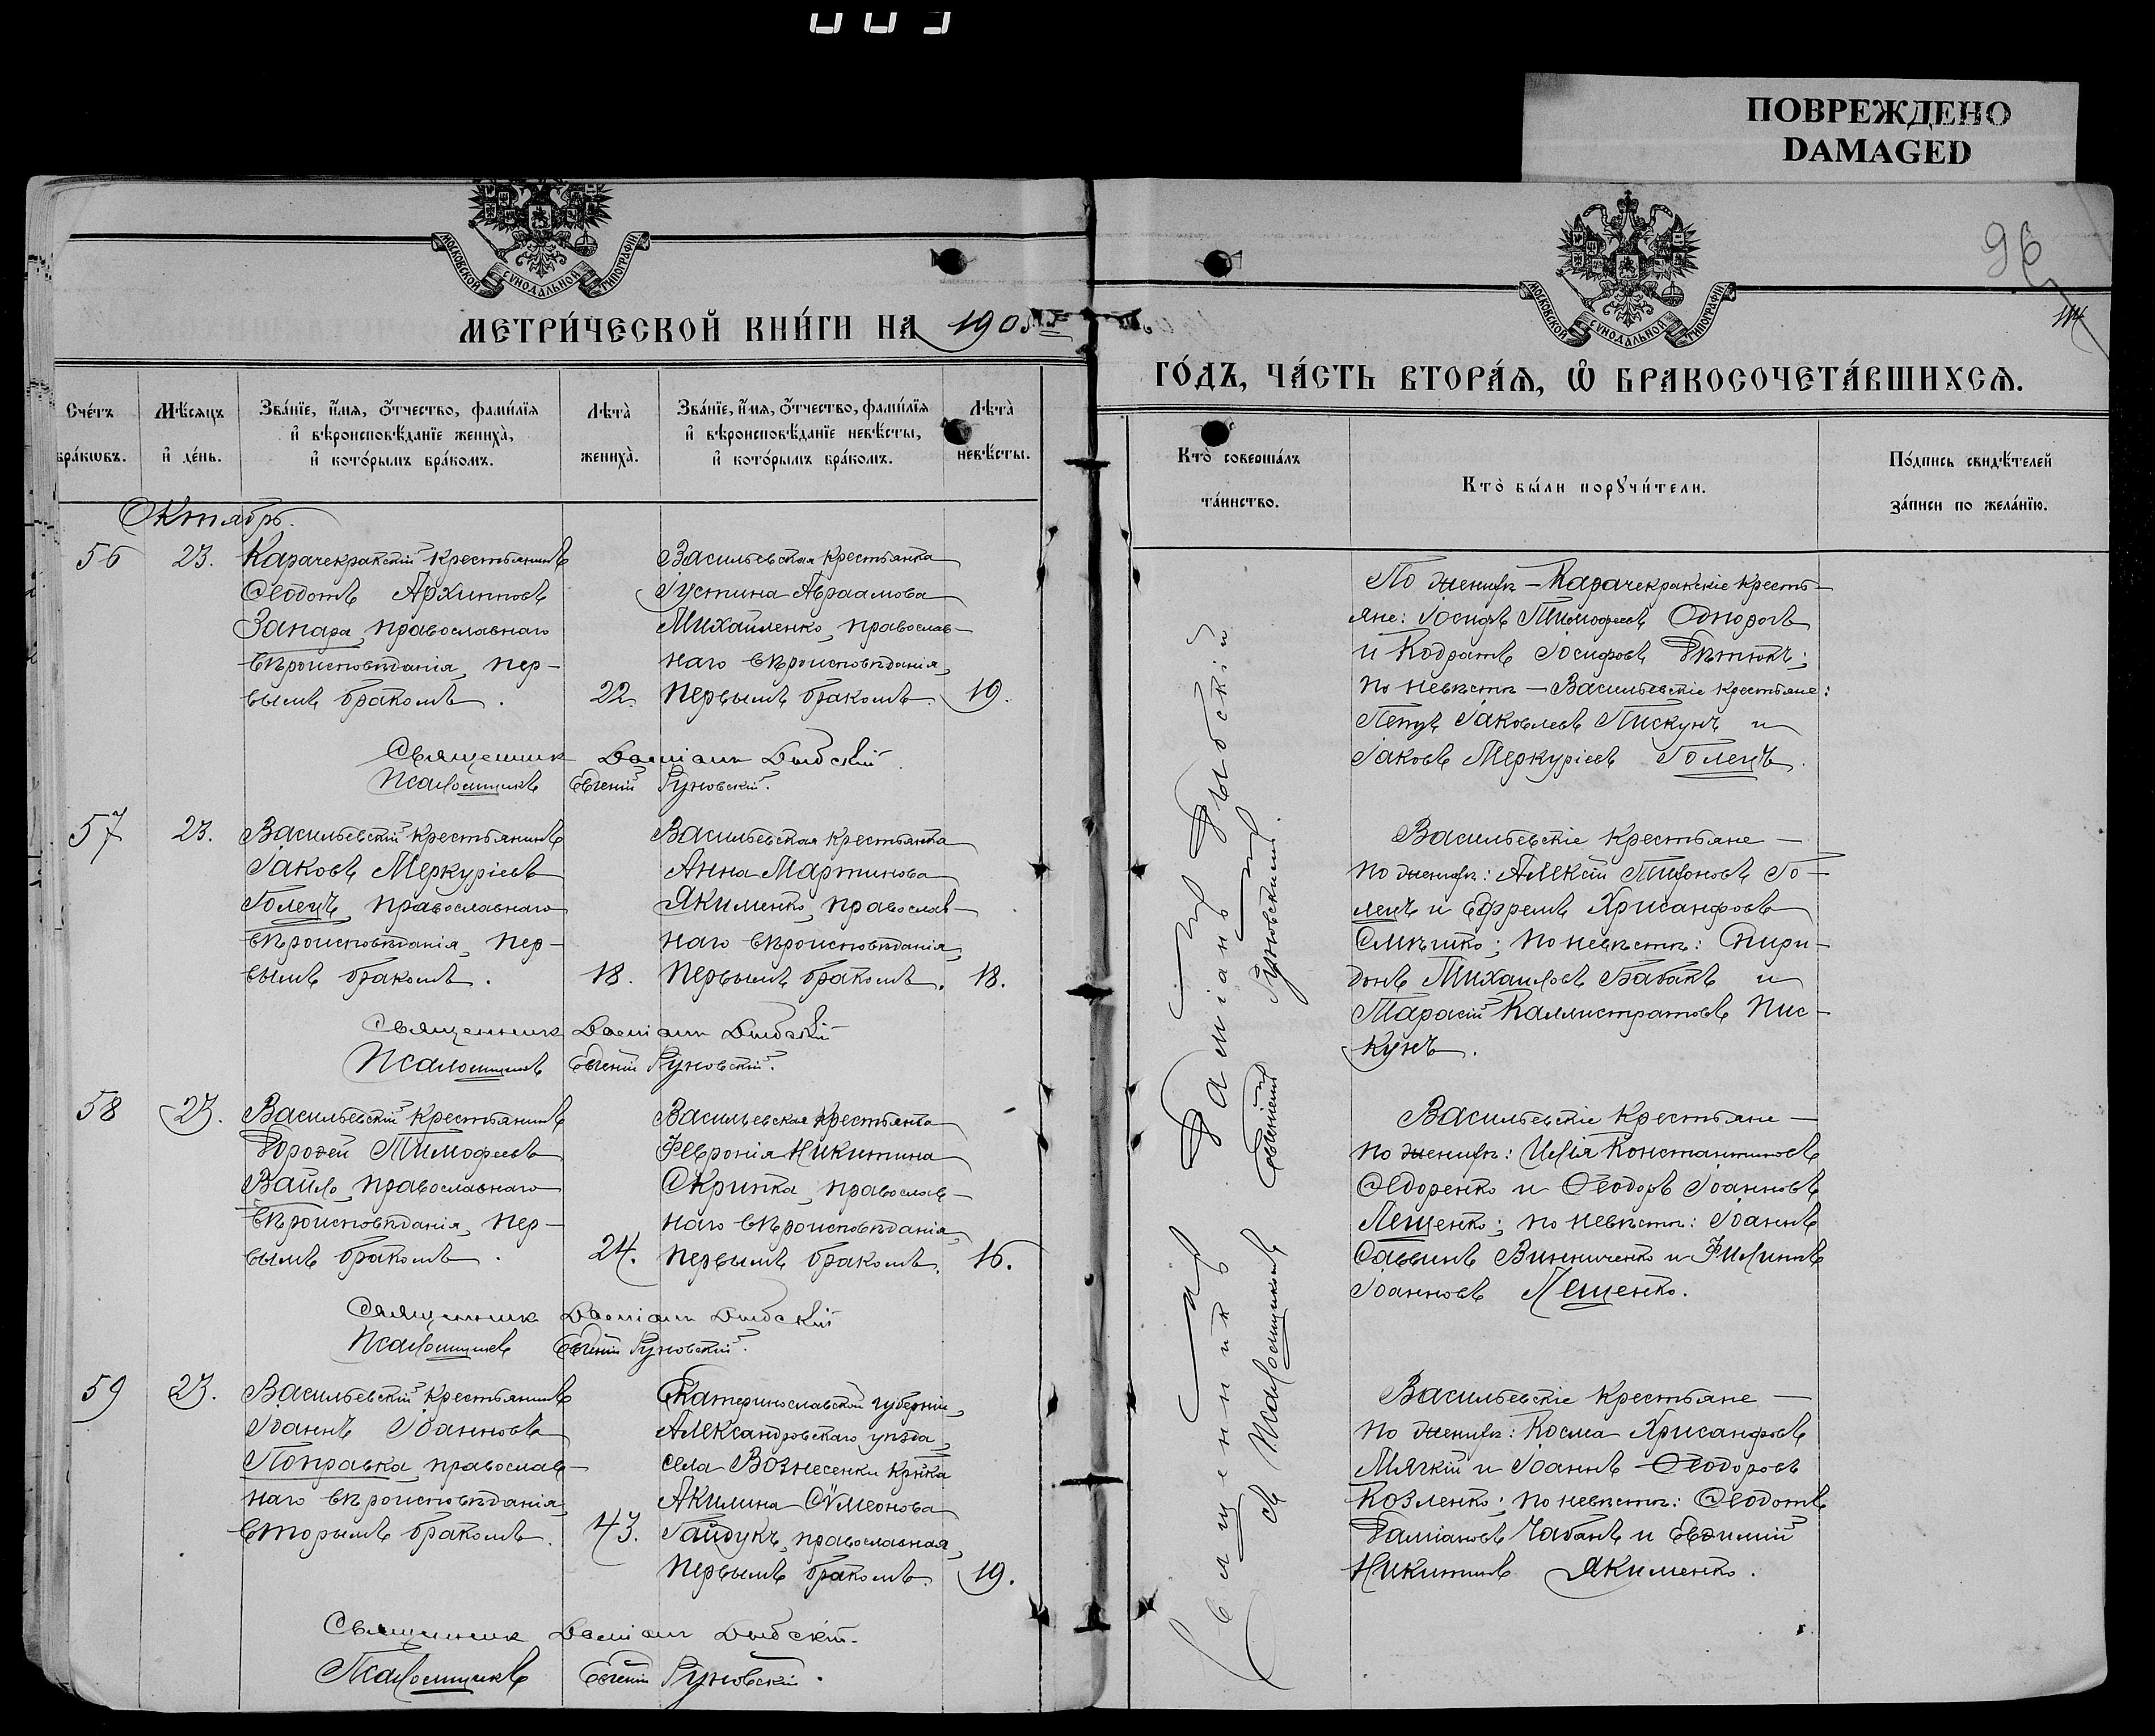 ПОВРЕЖДЕНО
DAMAGED
96
МОСКОВСКОЙ СѴНОДАЛЬНОЙ ТИПОГРАФІИ
МОСКОВСКОЙ СѴНОДАЛЬНОЙ ТИПОГРАФІИ
МЕТРИ́ЧЕСКОЙ КНИ́ГИ НА 1905
ГО́ДЪ, ЧА́СТЬ ВТОРА́Ѧ, Ѡ҆ БРАКОСОЧЕТА́ВШИХСѦ.
Сче́тъ бра́кѡвъ.
Мѣ́сяцъ и҆ де́нь.
Зва́нїе, и҆́мѧ, ѻ҆́тчество, фами́лїѧ
и҆ вѣроисповѣ́данїе жениха̀,
и҆ кото́рымъ бра́комъ.
Лѣта̀ жениха̀.
Зва́нїе, и҆́мѧ, ѻ҆́тчество, фами́лїѧ
и҆ вѣроисповѣ́данїе невѣ́сты,
и҆ кото́рымъ бра́комъ.
Лѣта̀ невѣ́сты.
Кто̀ соверша́лъ
та́инство.
Кто̀ бы́ли порꙋчи́тели.
По́дпись свидѣ́телей
за́писи по жела́нїю.
Октябрь.
56 23.
Карачекракскій крестьянинъ
Ѳеодотъ Архиповъ
Запара, православнаго
вѣроисповѣданія, пер-
вымъ бракомъ.
22.
Васильевская крестьянка
Іустина Авраамова
Михайленко, православ-
наго вѣроисповѣданія,
первымъ бракомъ.
19.
По женихѣ – Карачекракскіе кресть-
яне: Іосифъ Тимофеевъ Однорогъ
и Кодратъ Іосифовъ Дѣтюкъ;
по невѣстѣ – Васильевскіе крестьяне:
Петръ Іаковлевъ Пискунъ и
Іаковъ Меркуріевъ Голецъ.
Священникъ Даміанъ Дыбскій
Псаломщикъ Евгеній Гуновскій.
57 23.
Васильевскій крестьянинъ
Іаковъ Меркуріевъ
Голецъ, православнаго
вѣроисповѣданія, пер-
вымъ бракомъ.
18.
Васильевская крестьянка
Анна Мартинова
Якименко, православ-
наго вѣроисповѣданія,
первымъ бракомъ.
18.
Васильевскіе крестьяне –
по женихѣ: Алексій Тихоновъ Го-
лецъ и Ефремъ Хрисанфовъ
Смѣшко; по невѣстѣ: Спири-
донъ Михаиловъ Бабакъ и
Тарасій Каллистратовъ Пис-
кунъ.
Священникъ Даміанъ Дыбскій
Псаломщикъ Евгеній Гуновскій.
58 23.
Васильевскій крестьянинъ
Дороѳей Тимофеевъ
Вайло, православнаго
вѣроисповѣданія, пер-
вымъ бракомъ.
24.
Васильевская крестьянка
Февронія Никитина
Скрипка, православ-
наго вѣроисповѣданія,
первымъ бракомъ.
16.
Васильевскіе крестьяне –
по женихѣ: Илія Константиновъ
Ѳедоренко и Ѳеодоръ Іоанновъ
Лещенко; по невѣстѣ: Іоаннъ
Саввинъ Винниченко и Филиппъ
Іоанновъ Лещенко.
Священникъ Даміанъ Дыбскій
Псаломщикъ Евгеній Гуновскій.
59 23.
Васильевскій крестьянинъ
Іоаннъ Іоанновъ
Поправка, православ-
наго вѣроисповѣданія,
вторымъ бракомъ.
43.
Екатеринославской губерніи,
Александровскаго уѣзда,
села Вознесенки кр-нка
Акилина Сѵмеонова
Гайдукъ, православная,
первымъ бракомъ.
19.
Васильевскіе крестьяне –
по женихѣ: Косма Хрисанфовъ
Мягкій и Іоаннъ Ѳеодоровъ
Козленко; по невѣстѣ: Ѳеодотъ
Даміановъ Чабанъ и Евѳимій
Никитинъ Якименко.
Священникъ Даміанъ Дыбскій.
Псаломщикъ Евгеній Гуновскій.
Священникъ Даміанъ Дыбскій
съ Псаломщикомъ Евгеніемъ Гуновскимъ.